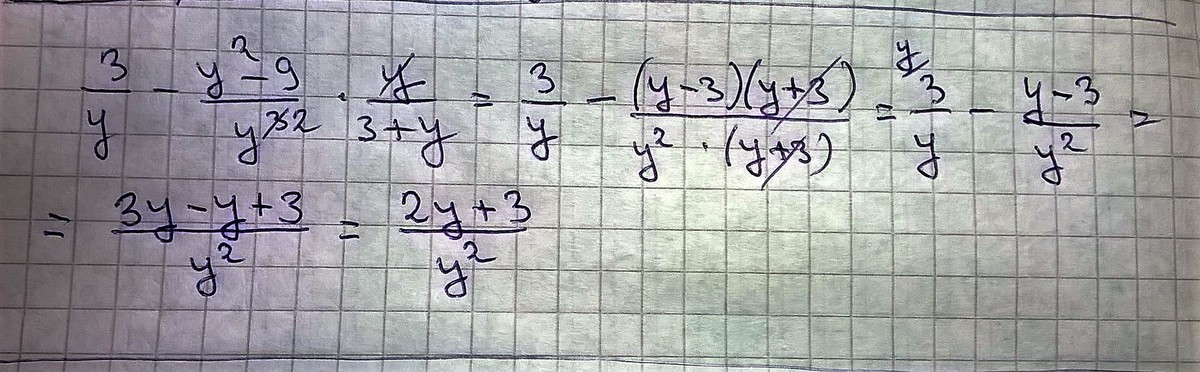 3/y - (y² - 9)/(y^3̶ 2) · y̶/(3 + y) = 3/y - ((y - 3)(y̶ ̶+̶ ̶3̶))/(y² · (y̶ ̶+̶ ̶3̶)) = 3^y/y - (y - 3)/y² =
= (3y - y + 3)/y² = (2y + 3)/y²